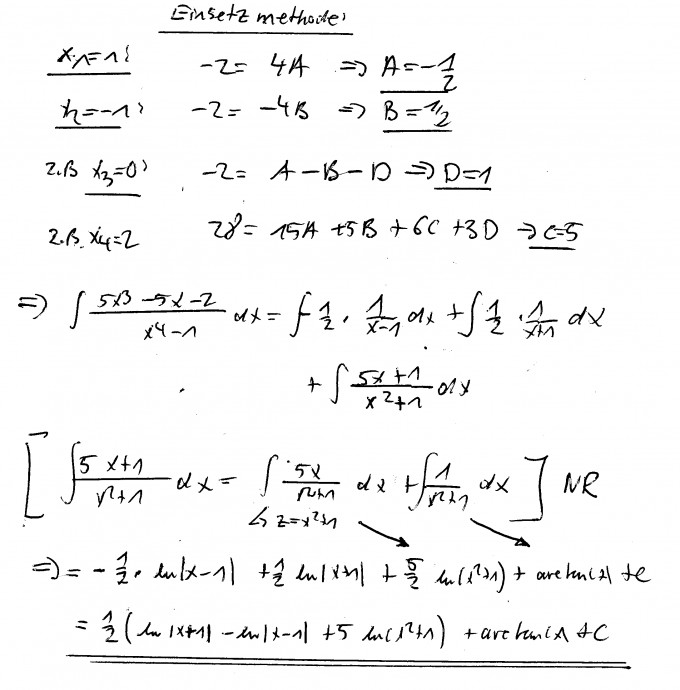 Einsetzmethode:
x₁=1: -2= 4A ⇒ A=-1/2
x₂=-1: -2= -4B ⇒ B=1/2
z.B x₃=0: -2= A-B-D ⇒ D=1
z.B. x₄=2 28= 15A +5B +6C +3D → C=5
⇒ ∫ (5x³-5x-2)/(x⁴-1) dx = ∫-1/2 · 1/(x-1) dx + ∫ 1/2 · 1/(x+1) dx
+ ∫ (5x+1)/(x²+1) dx
[ ∫ (5x+1)/(x²+1) dx = ∫ 5x/(x²+1) dx + ∫ 1/(x²+1) dx ] NR
↳ z=x²+1
⇒ = -1/2 · ln|x-1| + 1/2 ln|x+1| + 5/2 ln(x²+1) + arctan(x) +c
= 1/2 (ln|x+1| - ln|x-1| +5 ln(x²+1) + arctan(x +C